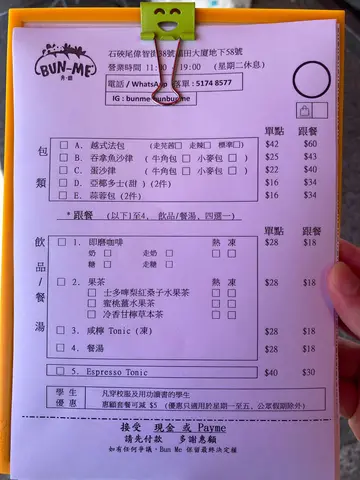 BUN-ME
石硤尾偉智街38號福田大廈地下58號
營業時間 11:00 - 19:00 (星期二休息)
電話 / WhatsApp 落單 : 5174 8577
IG : bunme_bunbunme
單點 跟餐
包類
A. 越式法包 (走芫茜 走辣 標準) $42 $60
B. 吞拿魚沙律 (牛角包 小麥包) $25 $43
C. 蛋沙律 (牛角包 小麥包) $22 $40
D. 亞椰多士(甜) (2件) $16 $34
E. 蒜蓉包 (2件) $16 $34
*跟餐 (以下1至4, 飲品/餐湯, 四選一)
單點 跟餐
飲品/餐湯
1. 即磨咖啡 熱 凍 $28 $18
奶 走奶
糖 走糖
2. 果茶 熱 凍 $28 $18
士多啤梨紅桑子水果茶
蜜桃薑水果茶
冷香甘檸草本茶
3. 咸檸 Tonic (凍) $28 $18
4. 餐湯 $28 $18
5. Espresso Tonic $40 $30
學生優惠
凡穿校服及用功讀書的學生
惠顧套餐可減 $5 (優惠只適用於星期一至五, 公眾假期除外)
接受 現金 或 Payme
請先付款 多謝惠顧
如有任何爭議, Bun Me 保留最終決定權